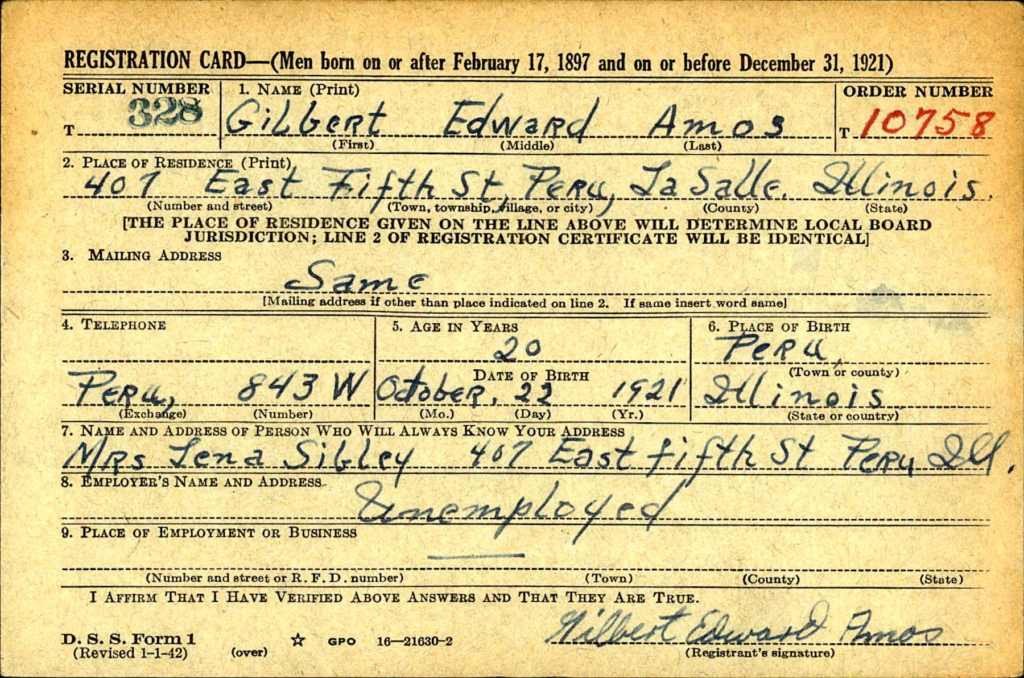 REGISTRATION CARD—(Men born on or after February 17, 1897 and on or before December 31, 1921)
SERIAL NUMBER 1. NAME (Print) ORDER NUMBER
T 328 Gilbert Edward Amos T 10758
(First) (Middle) (Last)
2. PLACE OF RESIDENCE (Print)
407 East Fifth St, Peru, La Salle. Illinois.
(Number and street) (Town, township, village, or city) (County) (State)
[THE PLACE OF RESIDENCE GIVEN ON THE LINE ABOVE WILL DETERMINE LOCAL BOARD
JURISDICTION; LINE 2 OF REGISTRATION CERTIFICATE WILL BE IDENTICAL]
3. MAILING ADDRESS
Same
[Mailing address if other than place indicated on line 2. If same insert word same]
4. TELEPHONE 5. AGE IN YEARS 6. PLACE OF BIRTH
20 Peru,
DATE OF BIRTH (Town or county)
Peru, 843 W October. 22 1921 Illinois
(Exchange) (Number) (Mo.) (Day) (Yr.) (State or country)
7. NAME AND ADDRESS OF PERSON WHO WILL ALWAYS KNOW YOUR ADDRESS
Mrs Lena Sibley 407 East fifth St Peru Ill.
8. EMPLOYER'S NAME AND ADDRESS
Unemployed
9. PLACE OF EMPLOYMENT OR BUSINESS
(Number and street or R. F. D. number) (Town) (County) (State)
I AFFIRM THAT I HAVE VERIFIED ABOVE ANSWERS AND THAT THEY ARE TRUE.
D. S. S. Form 1 ☆ GPO 16—21630-2 Gilbert Edward Amos
(Revised 1-1-42) (over) (Registrant's signature)